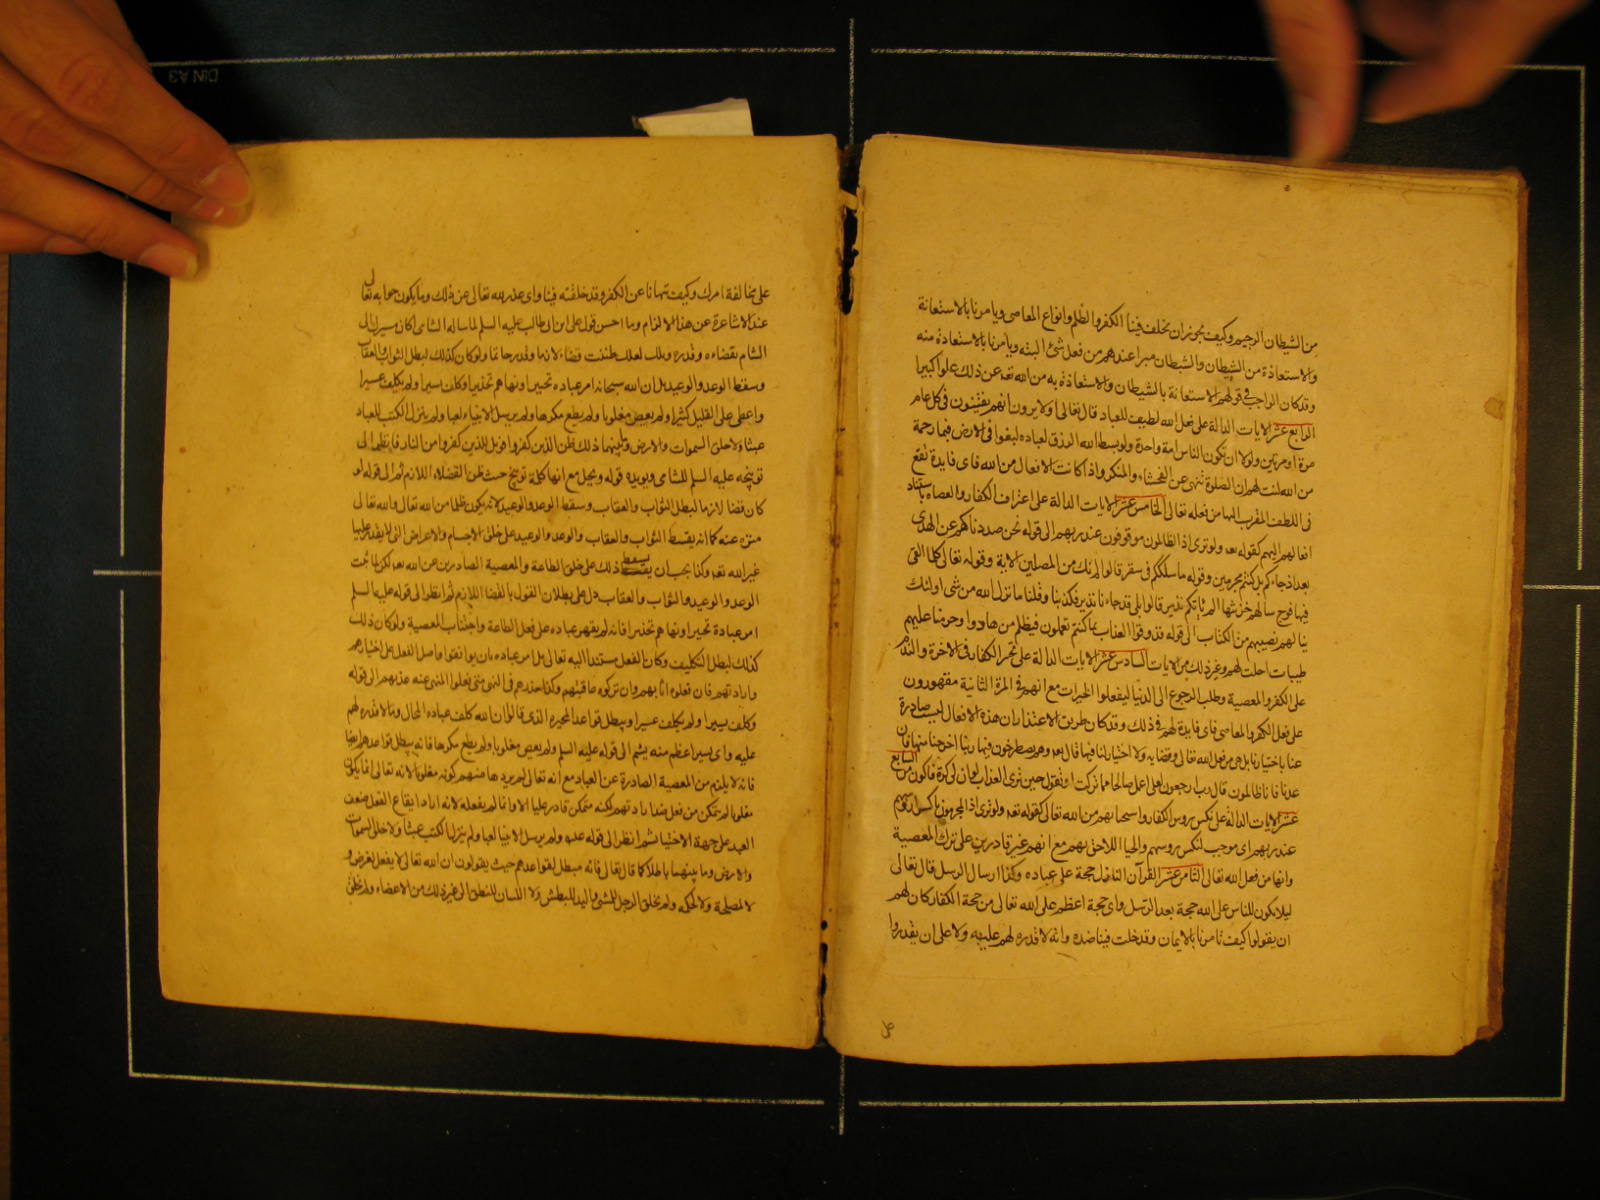 من الشيطان الرجيم وكيف يجوز ان يخلف فينا الكفر والظلم وانواع المعاصى ويامرنا بالاستعانة
والاستعاذة من الشيطان والشيطان مبرا عندهم من فعل شئ البتة ويامرنا بالاستعاذة منه
وقد كان الواجب فى قولهم الاستعانة بالشيطان والاستعاذة به من الله تعه عن ذلك علوا كبيرا
الرابع عشر الايات الدالة على فعل الله لطيف للعباد قال تعالى اولا يرون انهم يفتنون فى كل عام
مرة او مرتين ولولا ان تكون الناس امة واحدة ولو بسط الله الرزق لعباده لبغوا فى الارض فبما رحمة
من الله لنت لهم ان الصلوة تنهى عن الفحشاء والمنكر واذا كانت الافعال من الله فاى فايدة تقع
فى اللطف المقرب اليها من فعله تعالى الخامس عشر الايات الدالة على اعتراف الكفار والعصاه باستناد
افعالهم اليهم كقوله تعه ولو ترى اذ الظالمون موقوفون عند ربهم الى قوله نحن صددناكم عن الهدى
بعد اذ جاءكم بل كنتم مجرمين وقوله ما سلككم فى سقر قالوا لم نك من المصلين الاية وقوله تعالى كلما القى
فيها فوج سالهم خزنتها الم ياتكم نذير قالوا بلى قد جاءنا نذير فكذبنا وقلنا ما نزل الله من شئ اولئك
ينالهم نصيبهم من الكتاب الى قوله فذوقوا العذاب بما كنتم تعملون فبظلم من هادوا وحرمنا عليهم
طيبات احلت لهم وغير ذلك من الايات السادس عشر الايات الدالة على تحسر الكفار فى الاخرة والندم
على الكفر والمعصية وطلب الرجوع الى الدنيا ليفعلوا الخيرات مع انهم فى المرة الثانية مقهورون
على فعل الكفر والمعاصى فاى فايدة لهم فى ذلك وقد كان طريق الاعتذار ان هذه الافعال ليست صادرة
عنا باختيارنا بل هى من فعل الله تعالى وقضايه ولا اختيار لنا فيها قال تعه وهم يصطرخون فيها ربنا اخرجنا منها فان
عدنا فانا ظالمون قال رب ارجعون لعلى اعمل صالحا فيما تركت او تقول حين ترى العذاب لو ان لى كرة فاكون من السابع
عشر الايات الدالة على نكس روس الكفار واستحيائهم من الله تعالى كقوله تعه ولو ترى اذ المجرمون ناكسوا رؤسهم
عند ربهم اى موجب لنكس روسهم والحياء اللاحق بهم مع انهم غير قادرين على ترك المعصية
وانها من فعل الله تعالى الثامن عشر القرآن النازل حجة على عباده وكذا ارسال الرسل قال تعالى
ليلا يكون للناس على الله حجة بعد الرسل واى حجة اعظم على الله تعالى من حجة الكفار كان لهم
ان يقولوا كيف تامرنا بالايمان وقد خلت فينا ضده وانه لا قدره لهم عليه ولا على ان يقدروا
على مخالفة امرك وكيف تنهانا عن الكفر وقد خلقته فينا واى عذر لله تعالى عن ذلك وما يكون جوابه تعالى
عند الاشاعرة عن هذا الالزام وما احسن قول على ابن ابى طالب عليه السلم لما ساله الشامى اكان مسيرك الى
الشام بقضاء الله وقدره ويلك لعلك ظننت قضاء لازما وقدرا حاتما ولو كان كذلك لبطل الثواب والعقاب
وسقط الوعد والوعيد بل ان الله سبحانه امر عباده تخييرا ونهاهم تحذيرا وكلف يسيرا ولم يكلف عسيرا
واعطى على القليل كثيرا ولم يعص مغلوبا ولم يطع مكرها ولم يرسل الانبياء لعبا ولم ينزل الكتب للعباد
عبثا ولا خلق السموات والارض وما بينهما ذلك ظن الذين كفروا فويل للذين كفروا من النار فانظر الى
توبيخه عليه السلم للشامى
كان قضاء لازما لبطل الثواب والعقاب وسقط الوعد والوعيد لانه يكون ظلما من الله تعالى والله تعالى
منزه عنه كما انه يقسط الثواب والعقاب والوعد والوعيد على خلق الاجسام والاعراض التى لا يقدر عليها
غير الله تعه وكذا يجب ان يسقط ذلك على خلق الطاعة والمعصية الصادرين عن الله تعه لكن لما ثبت
الوعد والوعيد والثواب والعقاب دل على بطلان القول بالقضاء اللازم ثم انظر الى قوله عليه السلم
امر عبادة تخييرا ونهاهم تحذيرا فانه لم يقهر عباده على فعل الطاعة واجتناب المعصية ولو كان ذلك
كذلك لبطل التكليف وكان الفعل مستندا اليه تعالى بل امر عباده بان يوافقوا واصل الفعل على اختيارهم
وارادتهم فان فعلوه اثابهم وان تركوه عاقبهم وكذا حذرهم فى النهى متى فعلوا المنهى عنه عذبهم الى قوله
وكلف يسيرا ولم يكلف عسيرا ويبطل قواعد المجبرة الذى قالوا ان الله كلف عباده المحال وما لا قدره لهم
عليه واى يسير اعظم منه ثم الى قوله عليه السلم ولم يعص مغلوبا ولم يطع مكرها فانه يبطل قواعدهم ايضا
فانه لا يلزم من المعصية الصادرة عن العباد مع انه تعالى لم يردها منهم كونه مغلوبا لانه تعالى انما يكون
مغلوبا لو لم يتمكن من فعل ضد ارادتهم لكنه متمكن قادر عليها الا وانما لم يفعله لانه اراد ايقاع الفعل
العبد على جهة الاختيار ثم انظر الى قوله عليه ولم يرسل الانبياء لعبا ولم ينزل الكتب عبثا ولا خلق السموات
والارض وما بينهما باطلا كما قال تعالى فانه مبطل لقواعدهم حيث يقولون ان الله تعالى لا يفعل لغرض و
لا لمصلحة ولا لحكمة ولم يخلق الرجل للمشى واليد للبطش ولا اللسان للنطق الى غير ذلك من الاعضاء ولم يخلق
على